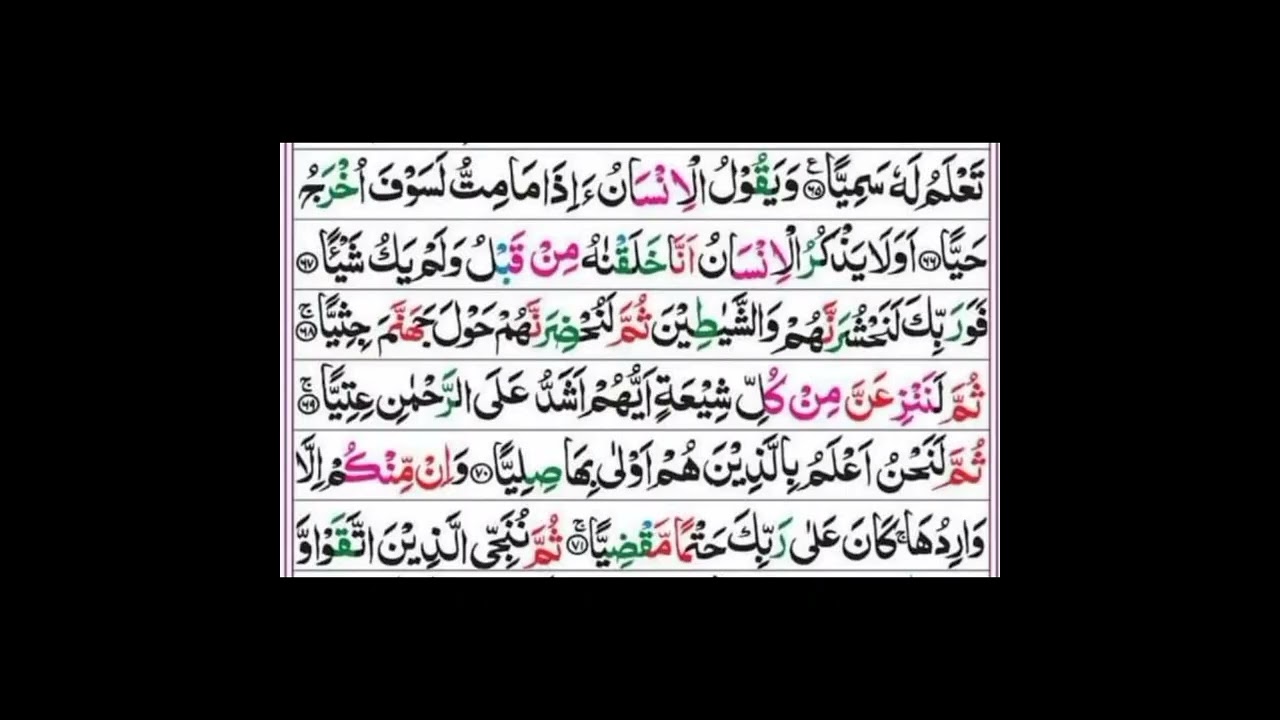 تَعْلَمُ لَهٗ سَمِيًّا ۠ۧ۶۵ وَيَقُوْلُ الْاِنْسَانُ ءَاِذَا مَا مِتُّ لَسَوْفَ اُخْرَجُ
حَيًّا ۶۶ اَوَلَا يَذْكُرُ الْاِنْسَانُ اَنَّا خَلَقْنٰهُ مِنْ قَبْلُ وَلَمْ يَكُ شَيْـًٔا ۶۷
فَوَرَبِّكَ لَنَحْشُرَنَّهُمْ وَالشَّيٰطِيْنَ ثُمَّ لَنُحْضِرَنَّهُمْ حَوْلَ جَهَنَّمَ جِثِيًّا ۚ۶۸
ثُمَّ لَنَنْزِعَنَّ مِنْ كُلِّ شِيْعَةٍ اَيُّهُمْ اَشَدُّ عَلَى الرَّحْمٰنِ عِتِيًّا ۚ۶۹
ثُمَّ لَنَحْنُ اَعْلَمُ بِالَّذِيْنَ هُمْ اَوْلٰى بِهَا صِلِيًّا ۷۰ وَاِنْ مِّنْكُمْ اِلَّا
وَارِدُهَا ۚ كَانَ عَلٰى رَبِّكَ حَتْمًا مَّقْضِيًّا ۚ۷۱ ثُمَّ نُنَجِّى الَّذِيْنَ اتَّقَوْا وَّ